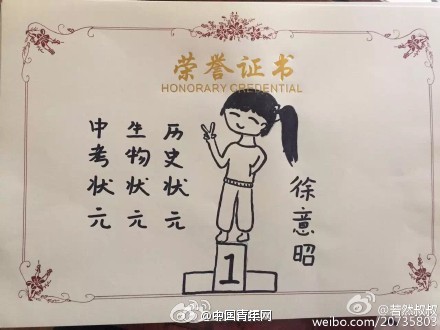 荣誉证书
HONORARY CREDENTIAL
历史状元
生物状元
中考状元
徐意昭
1
@中国青年网
@若然叔叔
weibo.com/20735803